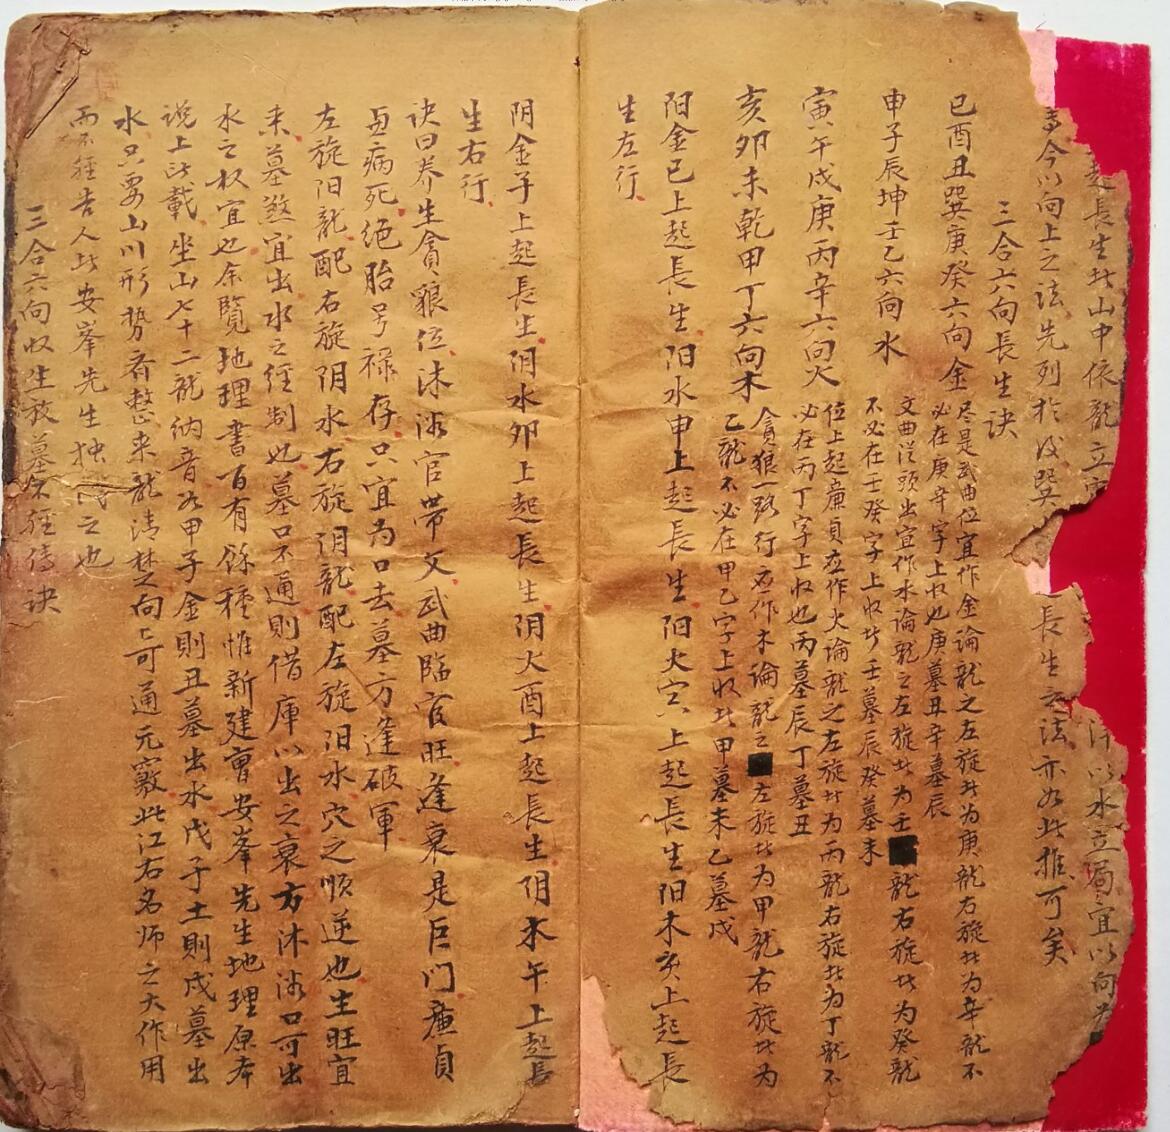 起長生此山中依龍立 行以水立局宜以向
今以向上之法先列於後巽 長生之法亦如此推可矣
三合六向長生訣
巳酉丑巽庚癸六向金 尽是武曲位宜作金論龍之左旋此为庚龍右旋此为辛龍不
必在庚辛字上收也庚墓丑辛墓辰
申子辰坤壬乙六向水 文曲從頭出宜作水論龍之左旋此为壬龍右旋此为癸龍
不必在壬癸字上收此壬墓辰癸墓未
寅午戌庚丙辛六向火 位上起廉貞在作火論龍之左旋此为丙龍右旋此为丁龍不
必在丙丁字上收也丙墓辰丁墓丑
亥卯未乾甲丁六向木 貪狼一路行在作木論龍之左旋此为甲龍右旋此为
乙龍不必在甲乙字上收此甲墓未乙墓戌
阳金巳上起長生阳水申上起長生阳火寅上起長生阳木亥上起長
生左行
阴金子上起長生阴水卯上起長生阴火酉上起長生阴木午上起長
生右行
诀曰养生貪狼位沐浴官带文武曲臨官旺逢衰是巨门廉貞
病死绝胎号禄存只宜为口去墓方逢破軍
左旋阳龍配右旋阴水右旋阴龍配左旋阳水穴之顺逆也生旺宜
来墓煞宜出水之径制也墓口不通則借庫以出之衰方沐浴口可出
水之权宜也余覽地理書百有餘種惟新建曹安峯先生地理原本
说上此載坐山七十二龍纳音如甲子金則丑墓出水戊子土則戌墓出
水只要山川形势齐整来龍清楚之向上可通元竅此江右名师之大作用
而不轻告人此安峯先生独 之也
三合六向收生放墓 经传诀